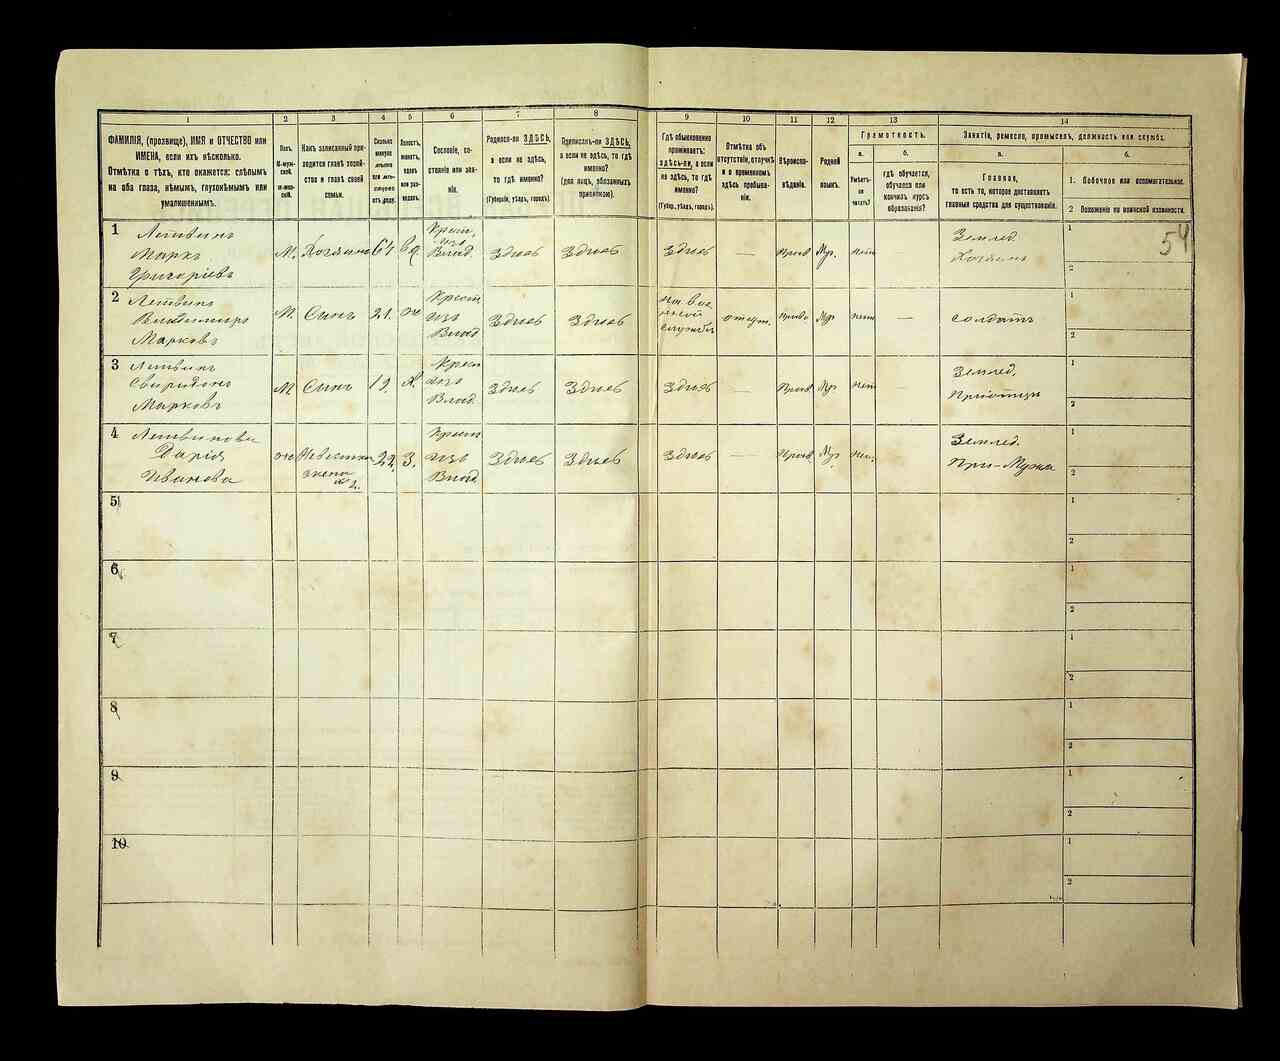 1 2 3 4 5 6 7 8 9 10 11 12 13 14
ФАМИЛІЯ, (прозвище), ИМЯ и ОТЧЕСТВО или
ИМЕНА, если ихъ нѣсколько.
Отмѣтка о тѣхъ, кто окажется: слѣпымъ
на оба глаза, нѣмымъ, глухонѣмымъ или
умалишеннымъ.
Полъ.
М-муж-
ской.
Ж-жен-
скій.
Какъ записанный при-
ходится главѣ хозяй-
ства и главѣ своей
семьи.
Сколько
минуло
лѣтъ
или мѣ-
сяцевъ
отъ роду.
Холостъ,
женатъ,
вдовъ
или раз-
веденъ.
Сословіе, со-
стояніе или зва-
ніе.
Родился-ли ЗДѢСЬ,
а если не здѣсь,
то гдѣ именно?
(Губернія, уѣздъ, городъ).
Приписанъ-ли ЗДѢСЬ,
а если не здѣсь, то гдѣ
именно?
(для лицъ, обязанныхъ
припискою).
Гдѣ обыкновенно
проживаетъ:
здѣсь-ли, а если
не здѣсь, то гдѣ
именно?
(Губер., уѣздъ, городъ).
Отмѣтка объ
отсутствіи, отлучкѣ
и о временномъ
здѣсь пребыва-
ніи.
Вѣроиспо-
вѣданіе.
Родной
языкъ.
Грамотность.
а.
Умѣетъ-
ли
читать?
б.
гдѣ обучается,
обучался или
кончилъ курсъ
образованія?
Занятіе, ремесло, промыселъ, должность или служба.
а.
Главное,
то есть то, которое доставляетъ
главныя средства для существованія.
б.
1. Побочное или вспомогательное.
2 Положеніе по воинской повинности.
54
1 Литвинъ
Маркъ
Григоріевъ
М. Хозяинъ 61 вд.
Крест.
изъ
Влад.
Здѣсь Здѣсь Здѣсь — Прав. Мр. нѣтъ
Землед.
Хозяинъ
1
2
2 Литвинъ
Владимиръ
Марковъ
М. Сынъ 21. ж
Крест.
изъ
Влад.
Здѣсь Здѣсь
на вое
нной
службѣ
отсут. Прав. Мр. нѣтъ — солдатъ
1
2
3 Литвинъ
Свиридонъ
Марковъ
М. Сынъ 19. х.
Крест.
изъ
Влад.
Здѣсь Здѣсь Здѣсь — Прав. Мр. нѣтъ —
Землед.
При отцѣ
1
2
4 Литвинова
Дарія
Иванова
ж Невестка
жена
№ 2.
22. З.
Крест.
изъ
Влад.
Здѣсь Здѣсь Здѣсь — Прав. Мр. нѣтъ —
Землед.
При-Мужа
1
2
5
1
2
6
1
2
7
1
2
8
1
2
9
1
2
10
1
2